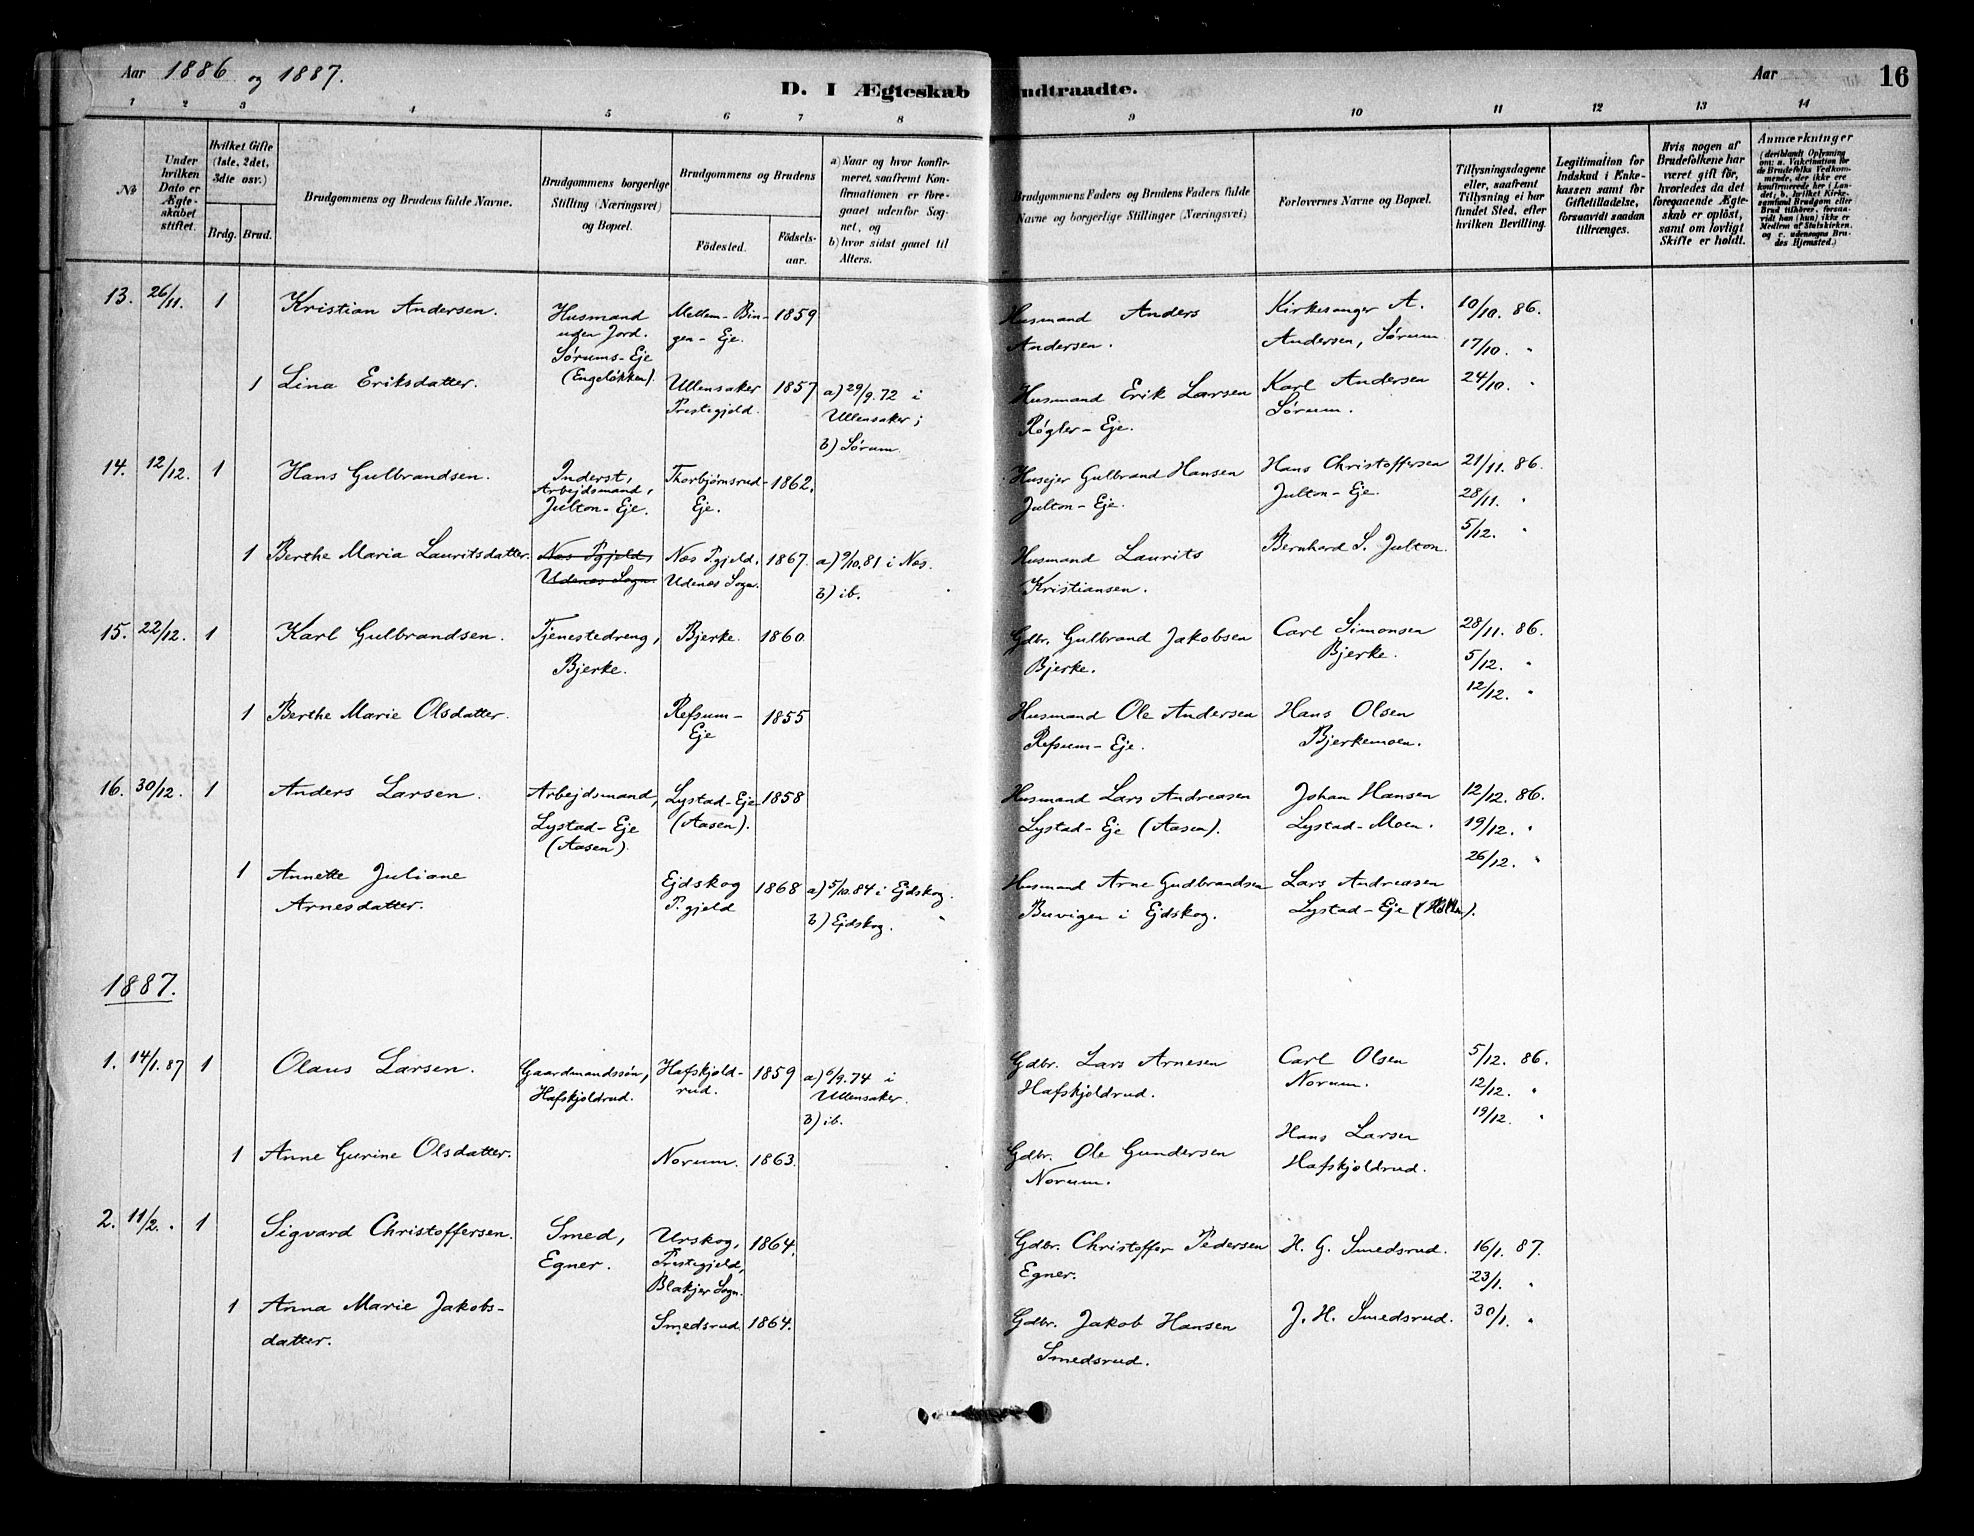 Aar 1886 og 1887.
D. I Ægteskab indtraadte.
Aar
16
1 2 3 4 5 6 7 8 9 10 11 12 13 14
No
Under hvilken Dato er Ægteskabet stiftet.
Hvilket Gifte (1ste, 2det, 3die osv.)
Brdg. Brud.
Brudgommens og Brudens fulde Navne.
Brudgommens borgerlige Stilling (Næringsvei) og Bopæl.
Brudgommens og Brudens
Födested.
Födselsaar.
a) Naar og hvor konfirmeret, saafremt Konfirmationen er foregaaet udenfor Sognet, og
b) hvor sidst gaaet til Alters.
Brudgommens Faders og Brudens Faders fulde Navne og borgerlige Stillinger (Næringsvei)
Forlovernes Navne og Bopæl.
Tillysningsdagene eller, saafremt Tillysning ei har fundet Sted, efter hvilken Bevilling.
Legitimation for Indskud i Enkekassen samt for Giftetilladelse, forsaavidt saadan tiltrænges.
Hvis nogen af Brudefolkene har været gift för, hvorledes da det foregaaende Ægteskab er oplöst, samt om lovligt Skifte er holdt.
Anmærkninger
(deriblandt Oplysning om: a. Vakcination for de Brudefolks Vedkommende, der ikke ere konfirmerede her i Landet; b. hvilket Kirkesamfund Brudgom eller Brud tilhörer, forsaavidt han (hun) ikke er Medlem af Statskirken, og c. udensogns Brudes Hjemsted.)
13. 26/11. 1 Kristian Andersen. Husmand uden Jord. Sørums-Eje (Engeløkken). Mellem-Bingen-Eje. 1859 Husmand Anders Andersen. Kirkesanger A. Andersen, Sørum 10/10. 86. 17/10. "
1 Lina Eriksdatter. Ullensaker Prestegjeld. 1857 a) 29/9.72 i Ullensaker; b) Sørum. Husmand Erik Larsen Røgler-Eje. Karl Andersen Sørum. 24/10. "
14. 12/12. 1 Hans Gulbrandsen. Inderst, Arbejdsmand, Julton-Eje. Thorbjørnsrud-Eje. 1862. Husejer Gulbrand Hansen Julton-Eje. Hans Christoffersen Julton-Eje. 21/11. 86. 28/11. "
1 Berthe Maria Lauritsdatter. Nes Pgjeld, Udenes Sogn. Nes P.gjeld, Udenes Sogn. 1867. a) 9/10.81 i Nes. b) ib. Husmand Laurits Kristiansen. Bernhard S. Julton. 5/12. "
15. 22/12. 1 Karl Gulbrandsen. Tjenestedreng, Bjerke. Bjerke. 1860 Gdbr. Gulbrand Jakobsen Bjerke. Carl Simonsen Bjerke. 28/11. 86. 5/12. " 12/12. "
1 Berthe Marie Olsdatter. Refsum-Eje 1855 Husmand Ole Andersen Refsum-Eje. Hans Olsen Bjerkemoen.
16. 30/12. 1 Anders Larsen. Arbejdsmand, Lystad-Eje (Aasen). Lystad-Eje (Aasen). 1858 Husmand Lars Andreasen Lystad-Eje (Aasen). Johan Hansen Lystad-Moen. 12/12. 86. 19/12. " 26/12. "
1 Annette Juliane Arnesdatter. Ejdskog P.gjeld 1868 a) 5/10.84 i Ejdskog. b) Ejdskog. Husmand Arne Gudbrandsen Buvigen i Ejdskog. Lars Andreasen Lystad-Eje
1887.
1. 14/1.87 1 Olaus Larsen. Gaardmandssøn, Hafskjoldrud. Hafskjoldrud. 1859 a) 6/9.74 i Ullensaker. b) ib. Gdbr. Lars Arnesen Hafskjoldrud. Carl Olsen Norum. 5/12. 86. 12/12. " 19/12. "
1 Anne Gurine Olsdatter. Norum. 1863. Gdbr. Ole Gundersen Norum. Hans Larsen Hafskjoldrud.
2. 11/2. " 1 Sigvard Christoffersen. Smed, Egner. Urskog, Prestegjeld, Blakjer Sogn. 1864. Gdbr. Christoffer Pedersen Egner. H. G. Smedsrud. 16/1. 87. 23/1. "
1 Anna Marie Jakobsdatter. Smedsrud. 1864. Gdbr. Jakob Hansen Smedsrud. J. H. Smedsrud. 30/1. "